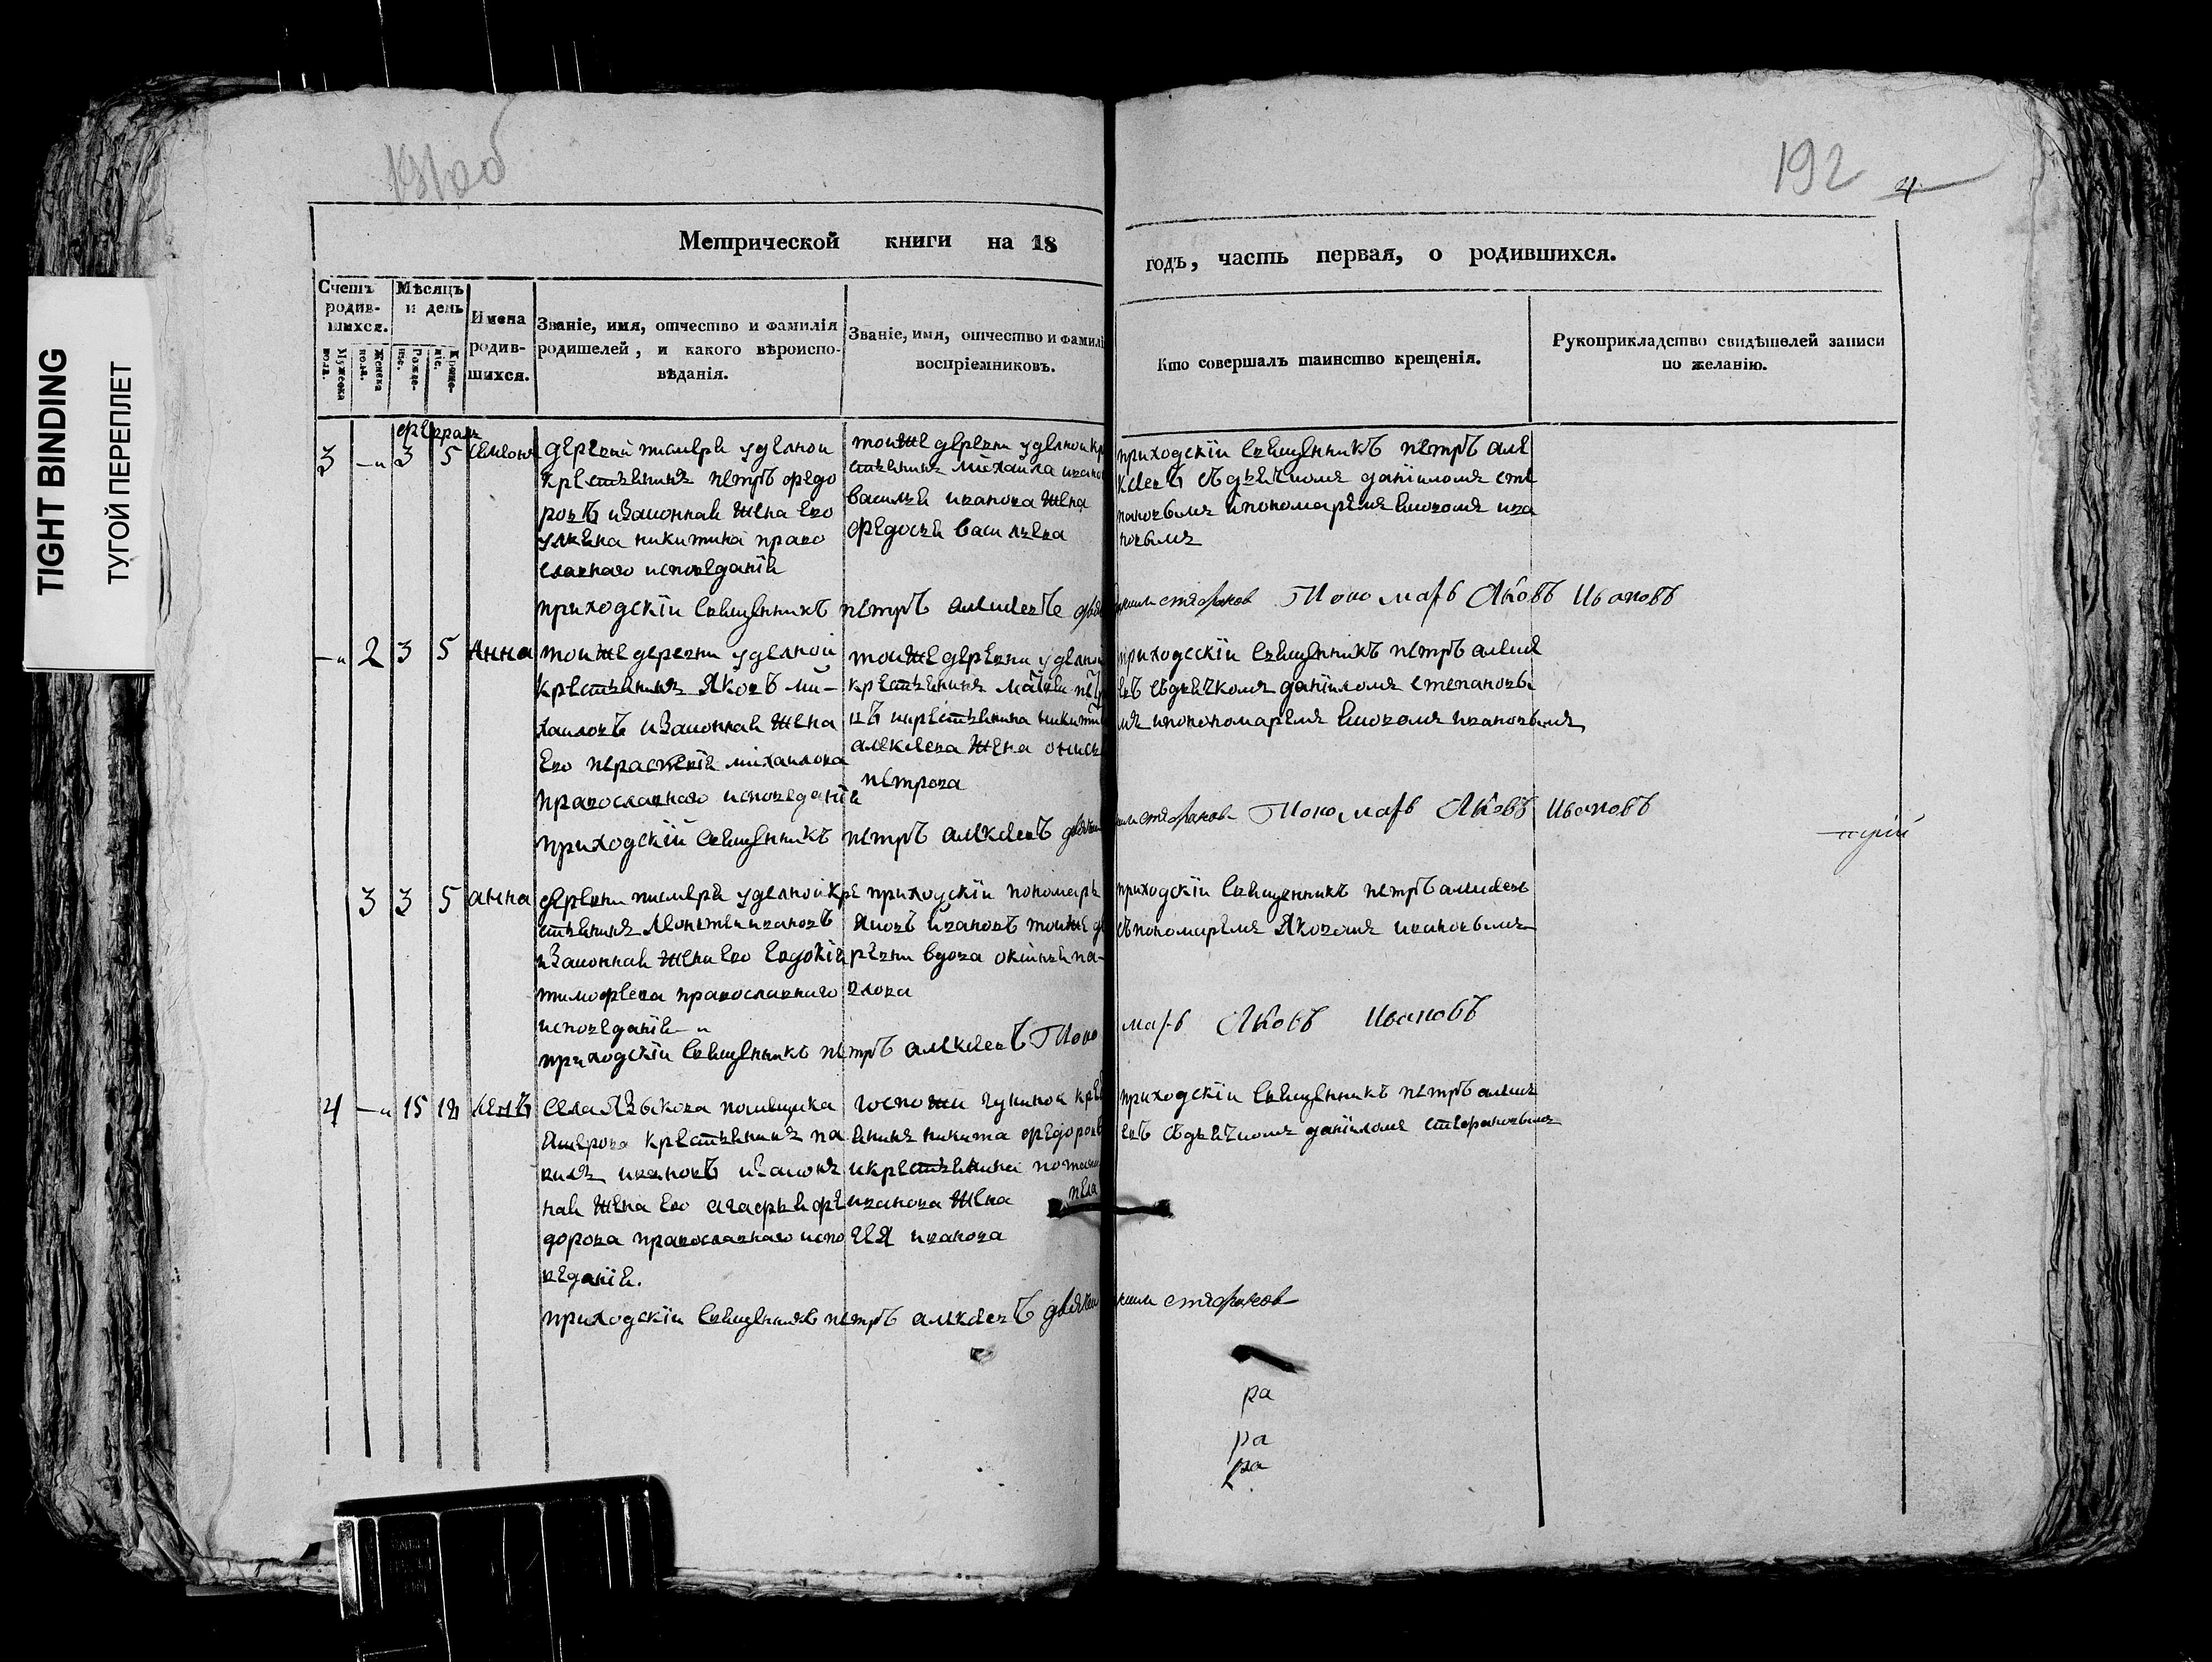 TIGHT BINDING
ТУГОЙ ПЕРЕПЛЕТ
191об
192
4
Метрической книги на 18
годъ, часть первая, о родившихся.
Счетъ родив-шихся.
Мужеска пола.
Женска пола.
Мѣсяцъ и день
Рожде-ніе.
Креще-ніе.
Имена родив-шихся.
Званіе, имя, отчество и фамилія родителей, и какого вѣроиспо-вѣданія.
Званіе, имя, отчество и фамилі воспріемниковъ.
Кто совершалъ таинство крещенія.
Рукоприкладство свидѣтелей записи по желанію.
3 3 5
деревни уделной
крестьянинъ петръ федо
ровъ и законная жена ево
никитина право
славнаго исповеданія
тоиже деревни уделнои кр
стьянинъ михаила ивано
василей иванова жена
федосья васильева
приходскіи священникъ петръ але
ксеевъ съ дьячкомъ даніиломъ сте
пановымъ и пономаремъ яковомъ ива
новымъ
приходскіи священникъ петръ алексеевъ
Пономарь Яковъ Ивановъ
2 3 5 Анна
тоиже деревни уделнои
крестьянинъ Яковъ ми-
хаиловъ и законная жена
ево михаилова
православнаго исповеданія
тоиже деревни уделнои
крестьянинъ
и крестьянина никит
алексеева жена
петрова
приходскіи священникъ петръ алексе
евъ съ дьячкомъ даніиломъ степановы
мъ и пономаремъ яковомъ ивановымъ
приходскіи священникъ петръ алексеевъ
Пономарь Яковъ Ивановъ
3 3 5 анна
деревни уделнои кре
стьянинъ ивановъ
и законная жена ево евдокія
тимофеева православнаго
исповеданія
приходскіи пономарь
яковъ ивановъ тоиже де
ревни вдова па-
влова
приходскіи священникъ петръ алексеевъ
съ пономаремъ Яковомъ ивановымъ
приходскіи священникъ петръ алексеевъ Поно
марь Яковъ Ивановъ
4 15
села Языкова помещика
крестьянинъ па
велъ ивановъ и закон
ная жена ево агафья фе
дорова православнаго испо
веданія.
госпожи крес
янинъ никита федоровъ
и крестьянина
иванова жена пела
гея иванова
приходскіи священникъ петръ алексе
евъ съ дьячкомъ даніиломъ стефановымъ
приходскіи священникъ петръ алексеевъ
ра
ра
ра